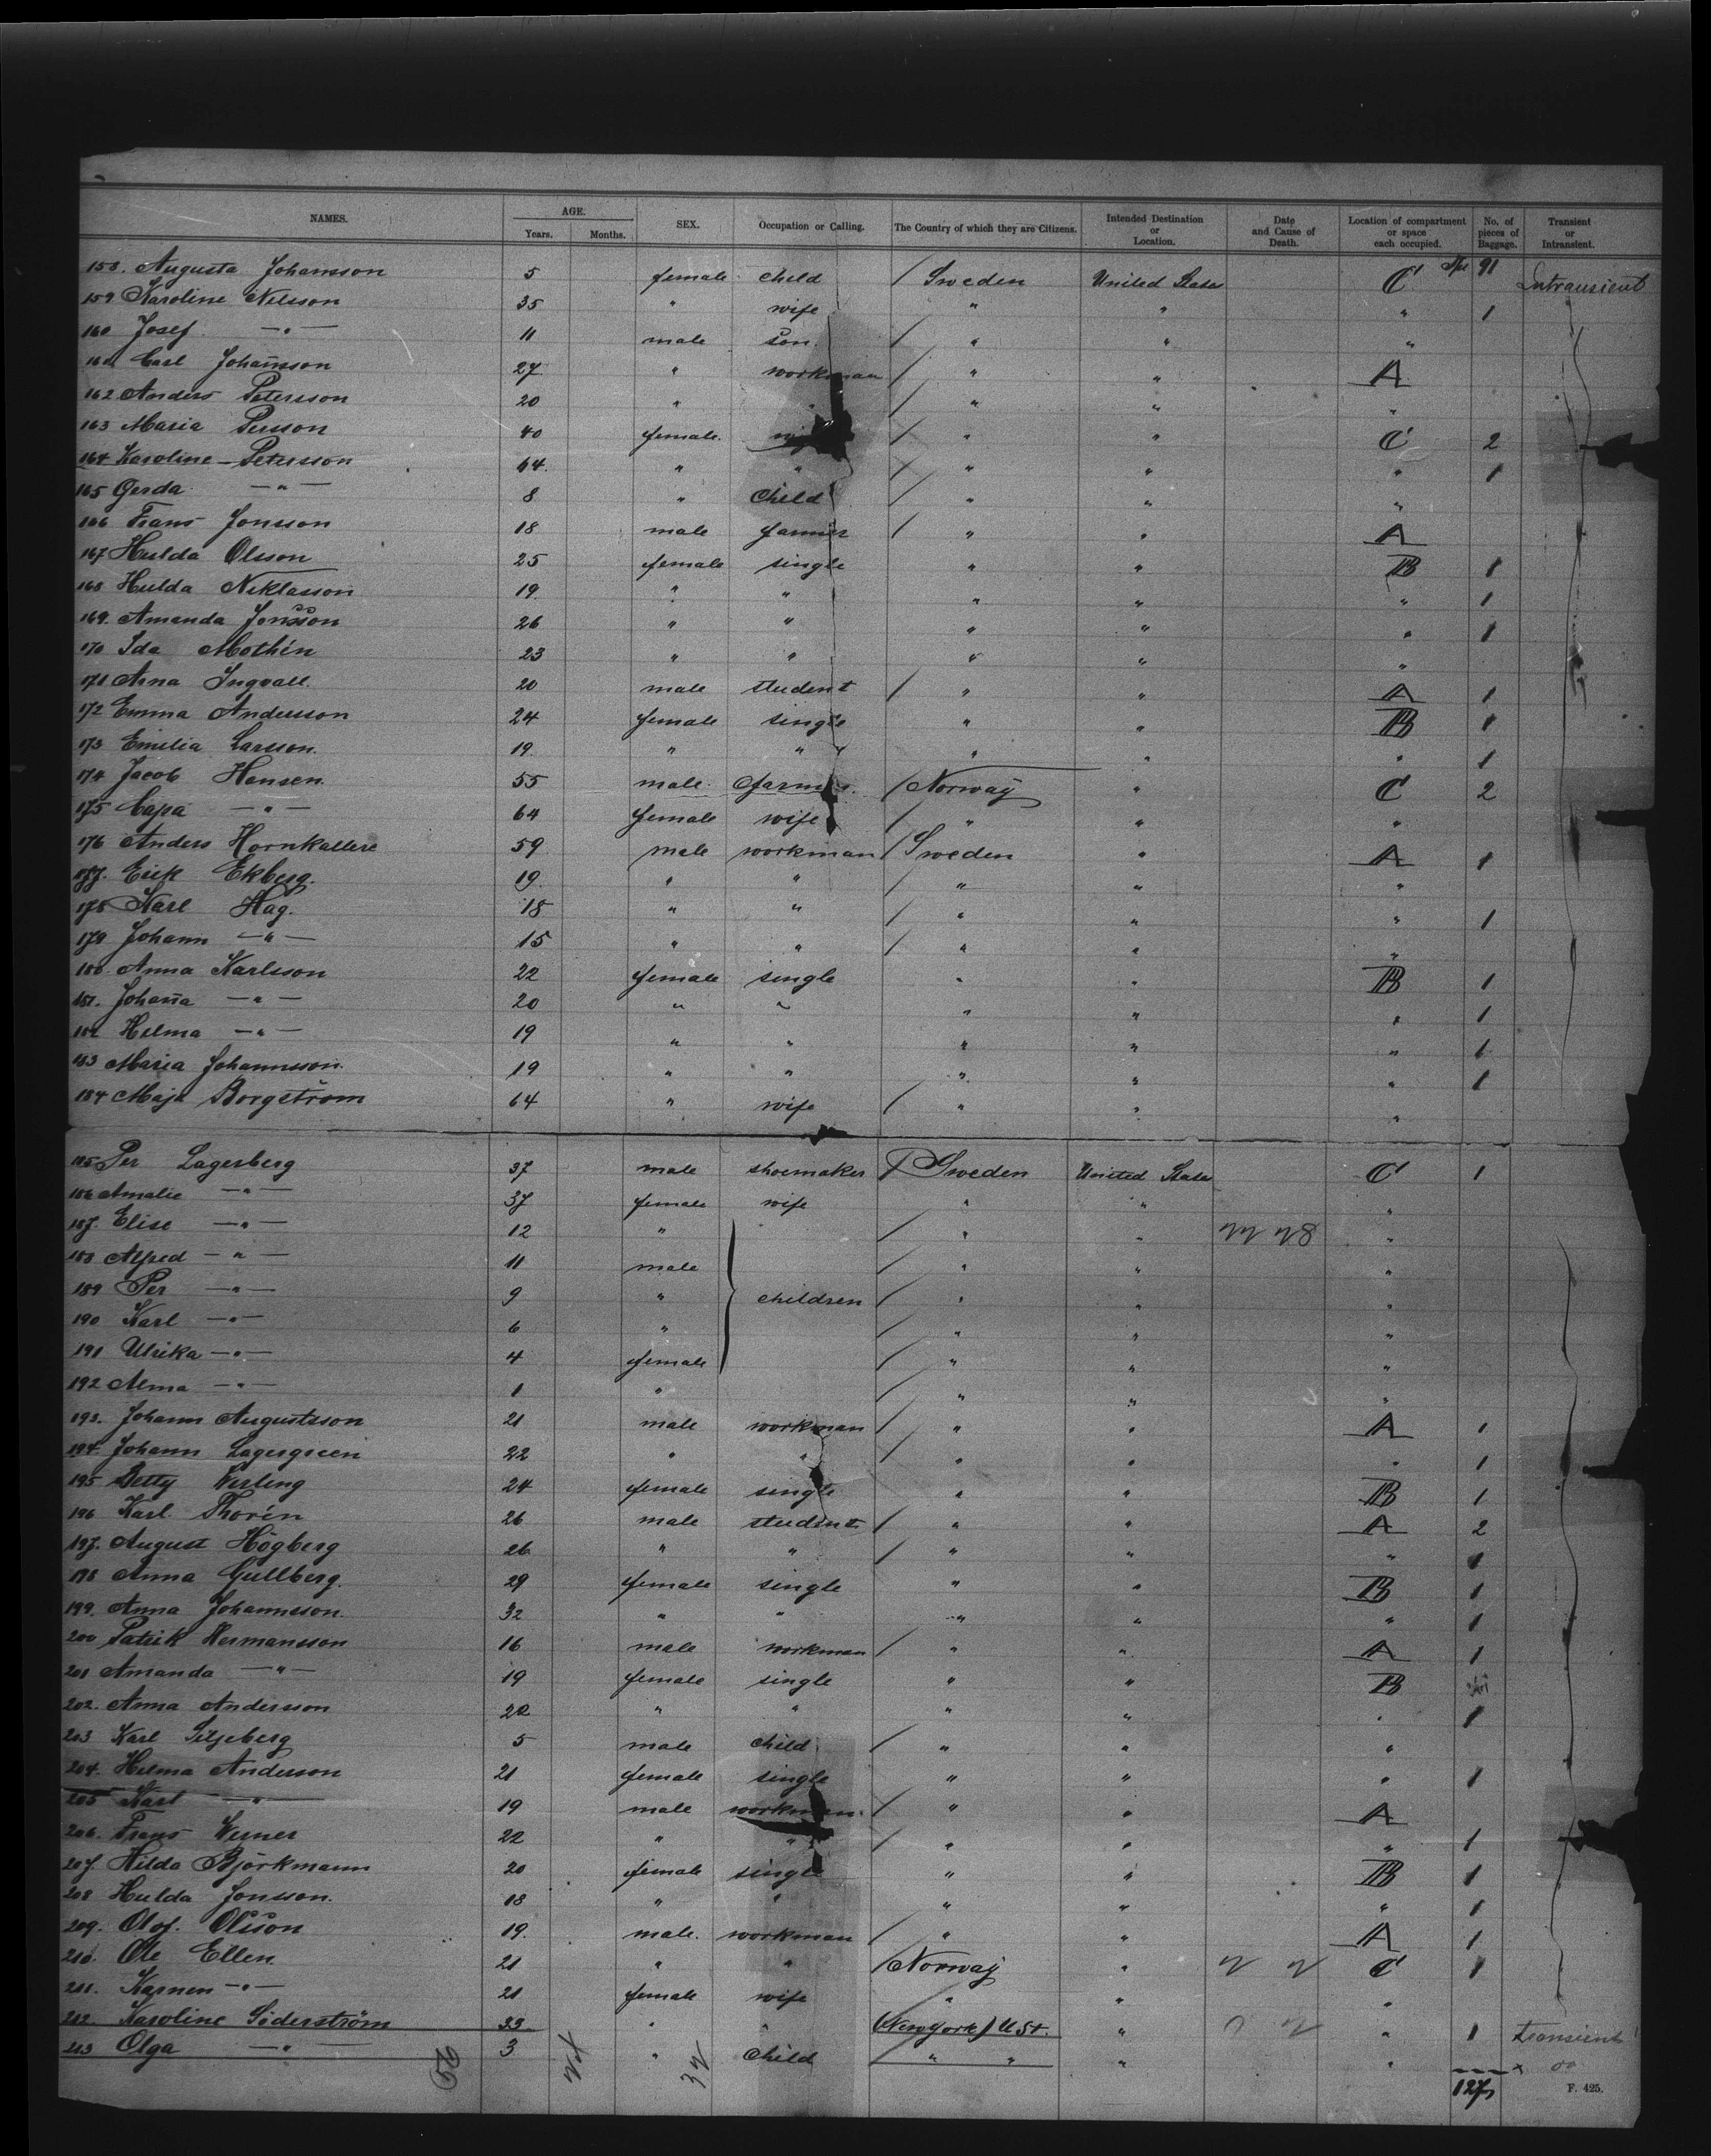 NAMES. AGE. Years. Months. SEX. Occupation or Calling. The Country of which they are Citizens. Intended Destination or Location. Date and Cause of Death. Location of compartment or space each occupied. No. of pieces of Baggage. Transient or Intransient.
158. Augusta Johansson 5 female child / Sweden United States C 91 Intransient
159 Karoline Nilsson 35 " wife " " " 1
160 Josef —"— 11 male son / " " "
161 Carl Johansson 27 " workman / " " A
162 Anders Petersson 20 " " / " " "
163 Maria Persson 40 female / " " C 2
164 Karoline Petersson 64 " " / " " " 1
165 Gerda —"— 8 " Child / " " "
166 Frans Jonsson 18 male farmer / " " A
167 Hulda Olsson 25 female single " " B 1
168 Hulda Niklasson 19 " " " " " 1
169. Amanda Jonsson 26 " " " " " 1
170 Ida Mothén 23 " " " " "
171 Arna Ingvall. 20 male student / " " A 1
172 Emma Andersson 24 female single " " B 1
173 Emilia Larsson. 19 " " " " " 1
174 Jacob Hansen. 55 male farmer / Norway " C 2
175 Capa —"— 64 female wife / " " "
176 Anders Hornkallere 59 male workman / Sweden " A 1
177. Erik Ekberg. 19. " " / " " "
178 Karl Hag. 18 " " / " " " 1
179 Johann —"— 15 " " / " " "
180. Anna Karlsson 22 female single " " B 1
181. Johana —"— 20 " " " " " 1
182 Helma —"— 19 " " " " " 1
183 Maria Johannsson. 19 " " " " " 1
184 Maja Borgström 64 " wife / " " "
185 Per Lagerberg 37 male shoemaker / Sweden United States C 1
186 Amalie —"— 37 female wife " " "
187. Elise —"— 12 " / " " "
188 Alfred —"— 11 male / " " "
189 Per —"— 9 " children / " " "
190 Karl —"— 6 " / " " "
191 Ulrika —"— 4 female / " " "
192 Alma —"— 1 " / " " "
193. Johann Augustsson 21 male workman / " " A 1
194. Johann Lagergreen 22 " " / " " " 1
195 Betty Werling 24 female single " " B 1
196 Karl Thorén 26 male student / " " A 2
197. August Högberg 26 " " / " " " 1
198 Anna Gullberg. 29 female single " " B 1
199. Anna Johannsson. 32 " " " " " 1
200 Patrik Hermansson 16 male workman / " " A 1
201 Amanda —"— 19 female single " " B
202. Anna Andersson 22 " " " " " 1
203 Karl Siljeberg 5 male child / " " "
204. Helma Anderson 21 female single " " " 1
205 Karl —"— 19 male workman / " " A
206. Frans Werner 22 " " / " " " 1
207. Hilda Björkmann 20 female single " " B 1
208 Hulda Jonsson. 18 " " " " " 1
209. Olof. Olsson 19. male. workman / " " A 1
210. Ole Ellen. 21 " " / Norway " C 1
211. Karnen —"— 21 female wife " " "
212. Karoline Söderström 33 " " (New York) U St. " " 1 transient
213 Olga —"— 3 " Child " " " "
56 32 127
F. 425.